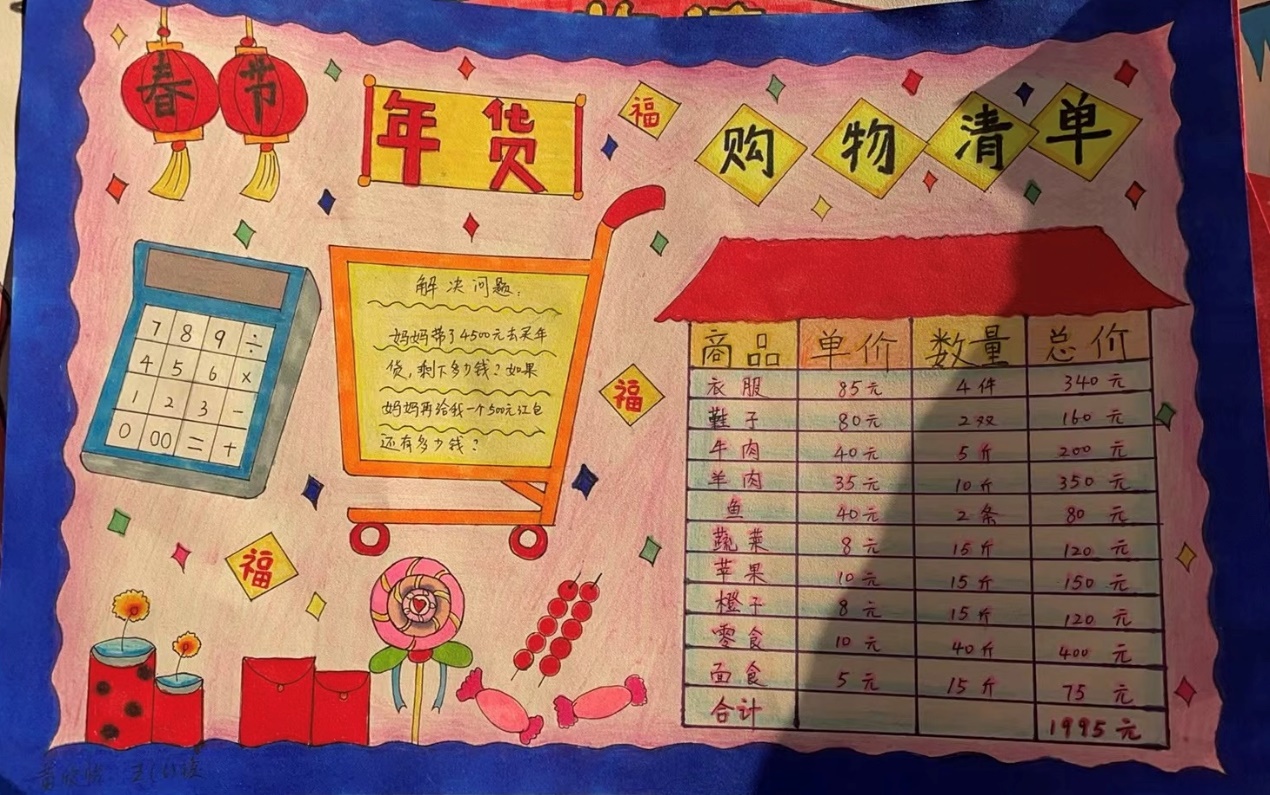 春节
年货
福
购物清单
7 8 9 ÷
4 5 6 ×
1 2 3 -
0 00 = +
解决问题:
妈妈带了4500元去买年
货,剩下多少钱?如果
妈妈再给我一个500元红包
还有多少钱?
福
福
商品 单价 数量 总价
衣服 85元 4件 340元
鞋子 80元 2双 160元
牛肉 40元 5斤 200元
羊肉 35元 10斤 350元
鱼 40元 2条 80元
蔬菜 8元 15斤 120元
苹果 10元 15斤 150元
橙子 8元 15斤 120元
零食 10元 40斤 400元
面食 5元 15斤 75元
合计 1995元